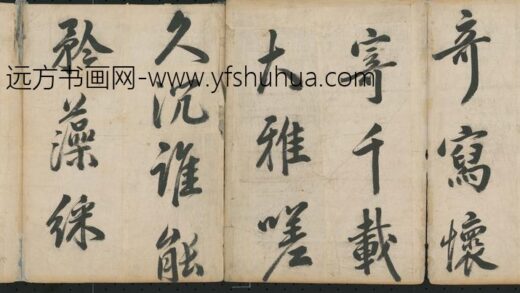 奇寫懷
寄千載
大雅嗟
久沉誰能
矜藻綵
远方书画网-www.yfshuhua.com